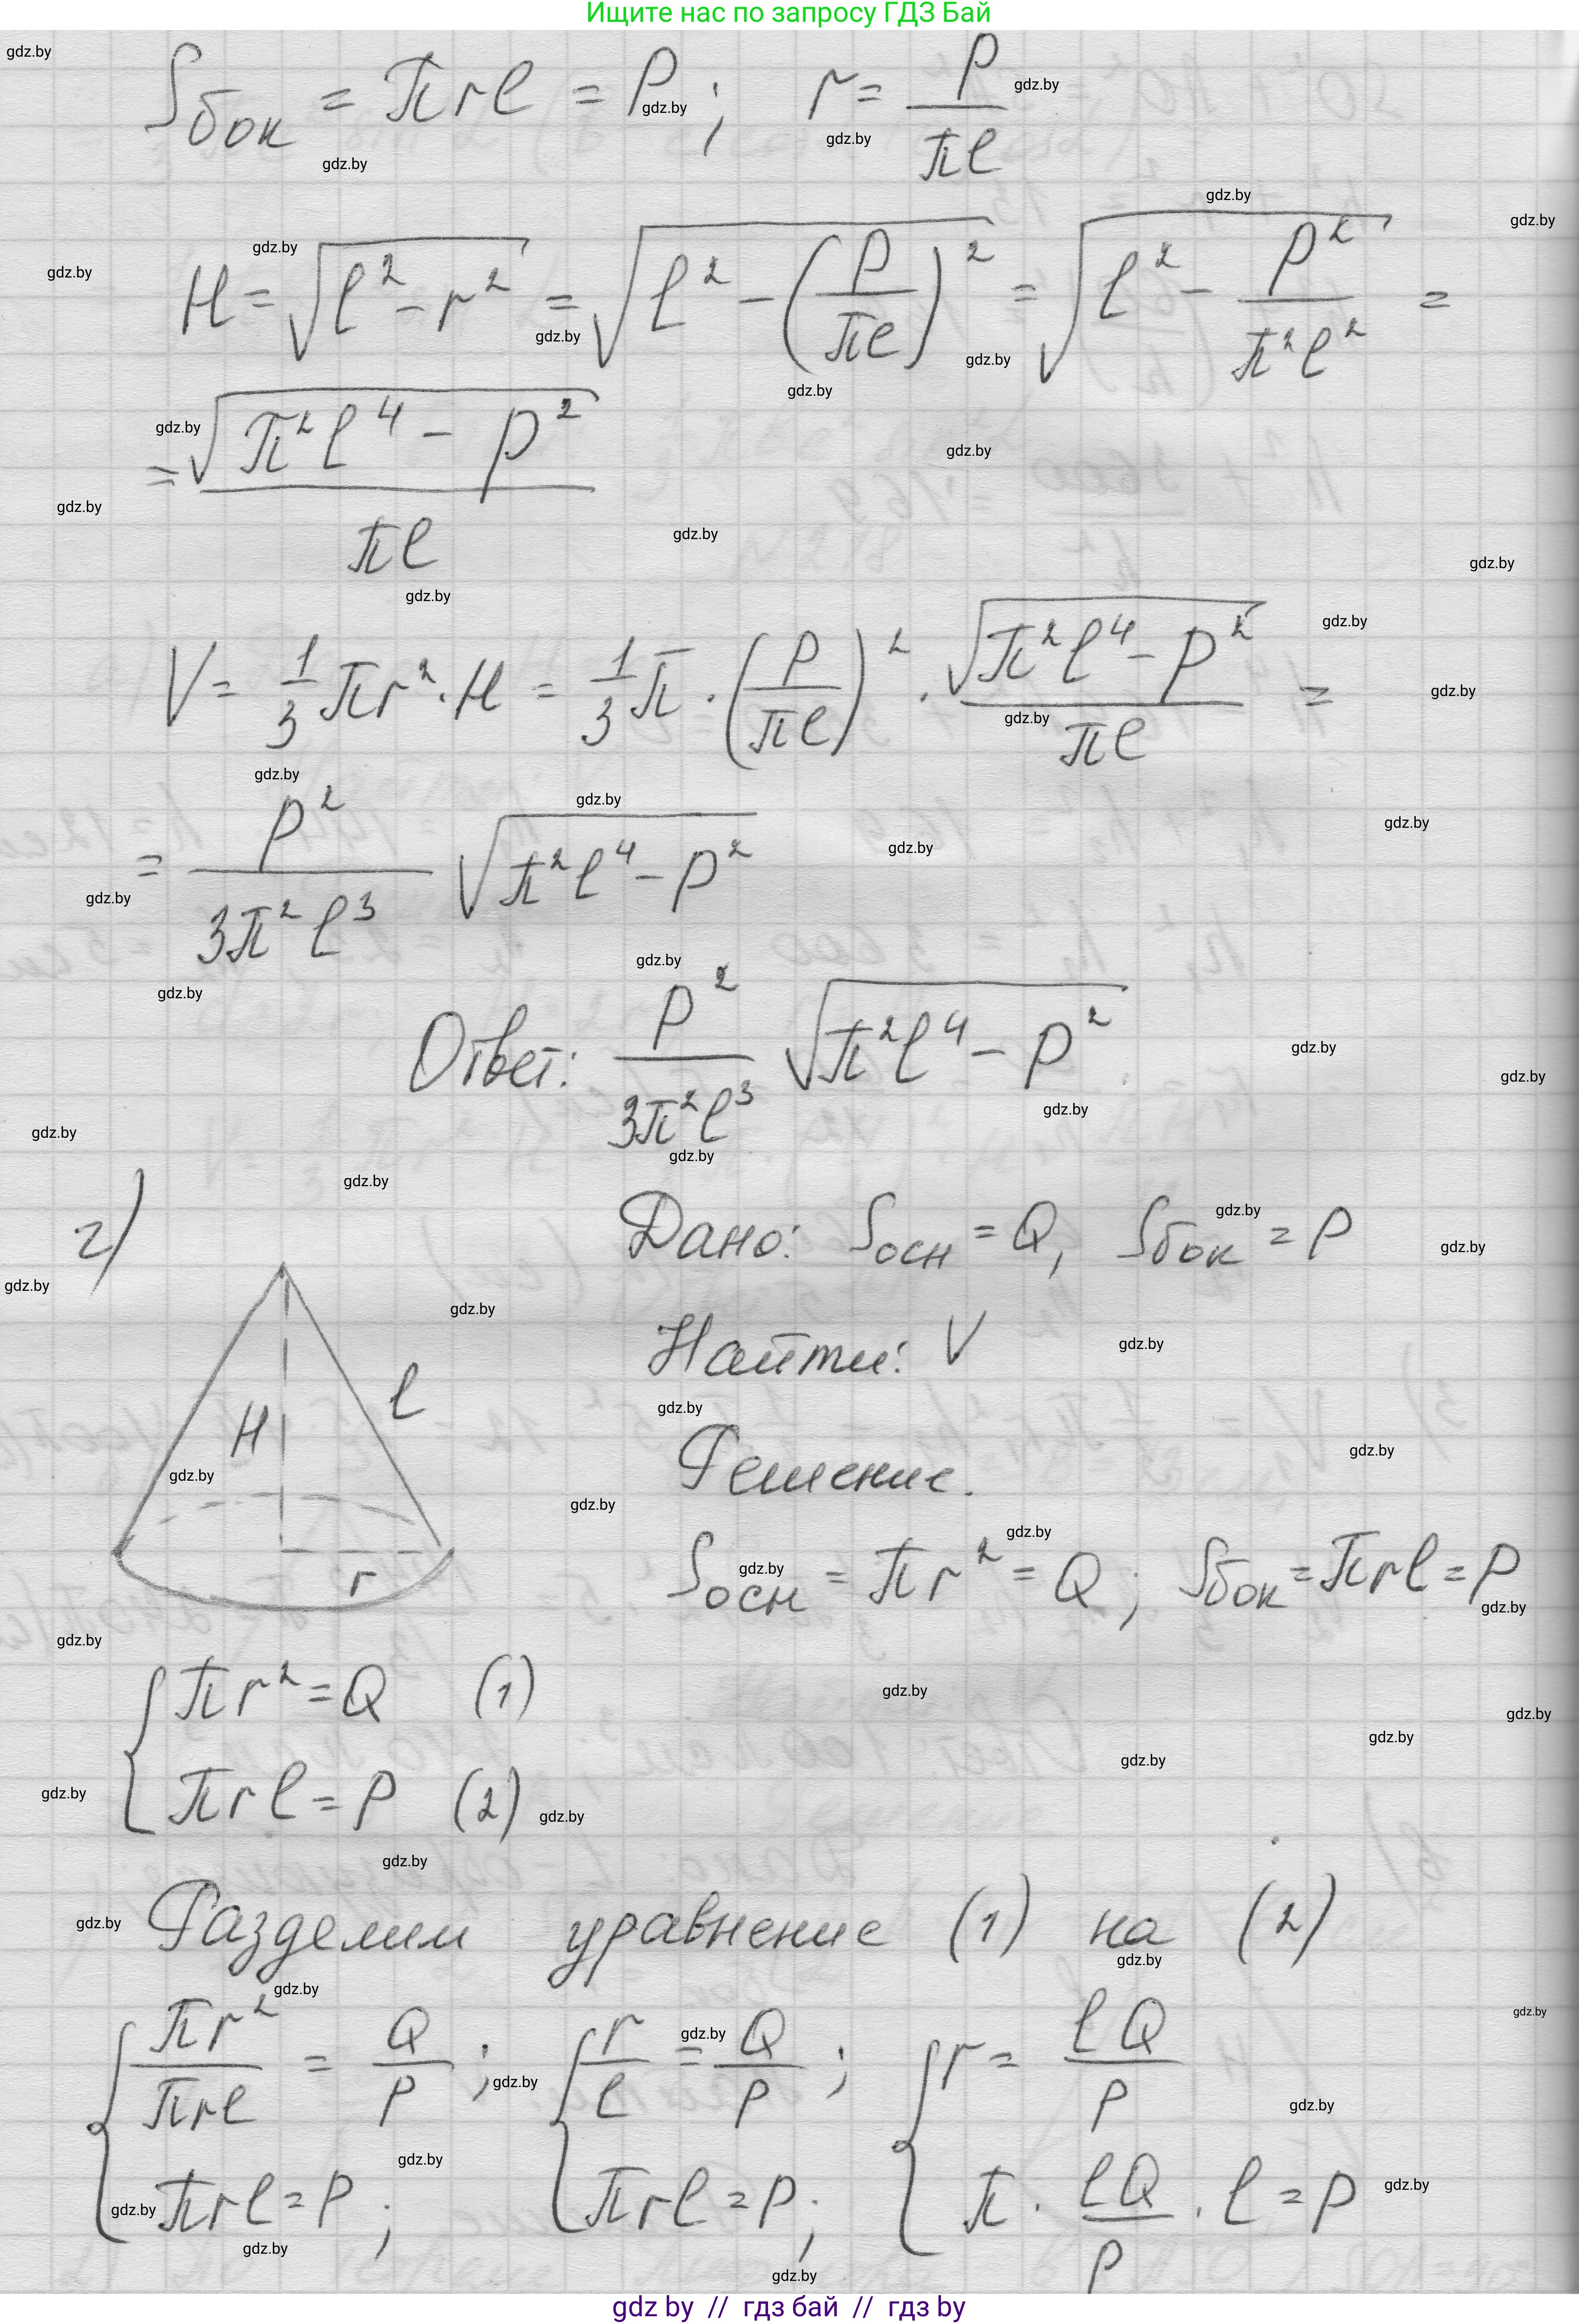 Ищите нас по запросу ГДЗ Бай
Sбок = πrl = P; r = P/(πl)
H = √(l² - r²) = √(l² - (P/(πl))²) = √(l² - P²/(π²l²)) =
= √(π²l⁴ - P²)/(πl)
V = 1/3 πr² · H = 1/3 π · (P/(πl))² · √(π²l⁴ - P²)/(πl) =
= P²/(3π²l³) √(π²l⁴ - P²)
Ответ: P²/(3π²l³) √(π²l⁴ - P²)
г)
Дано: Sосн = Q, Sбок = P
Найти: V
H l r
Решение.
Sосн = πr² = Q; Sбок = πrl = P
{ πr² = Q (1)
πrl = P (2)
Разделим уравнение (1) на (2)
{ πr²/(πrl) = Q/P; { r/l = Q/P; { r = lQ/P
πrl = P; πrl = P; π · lQ/P · l = P
gdz by // гдз бай // гдз by